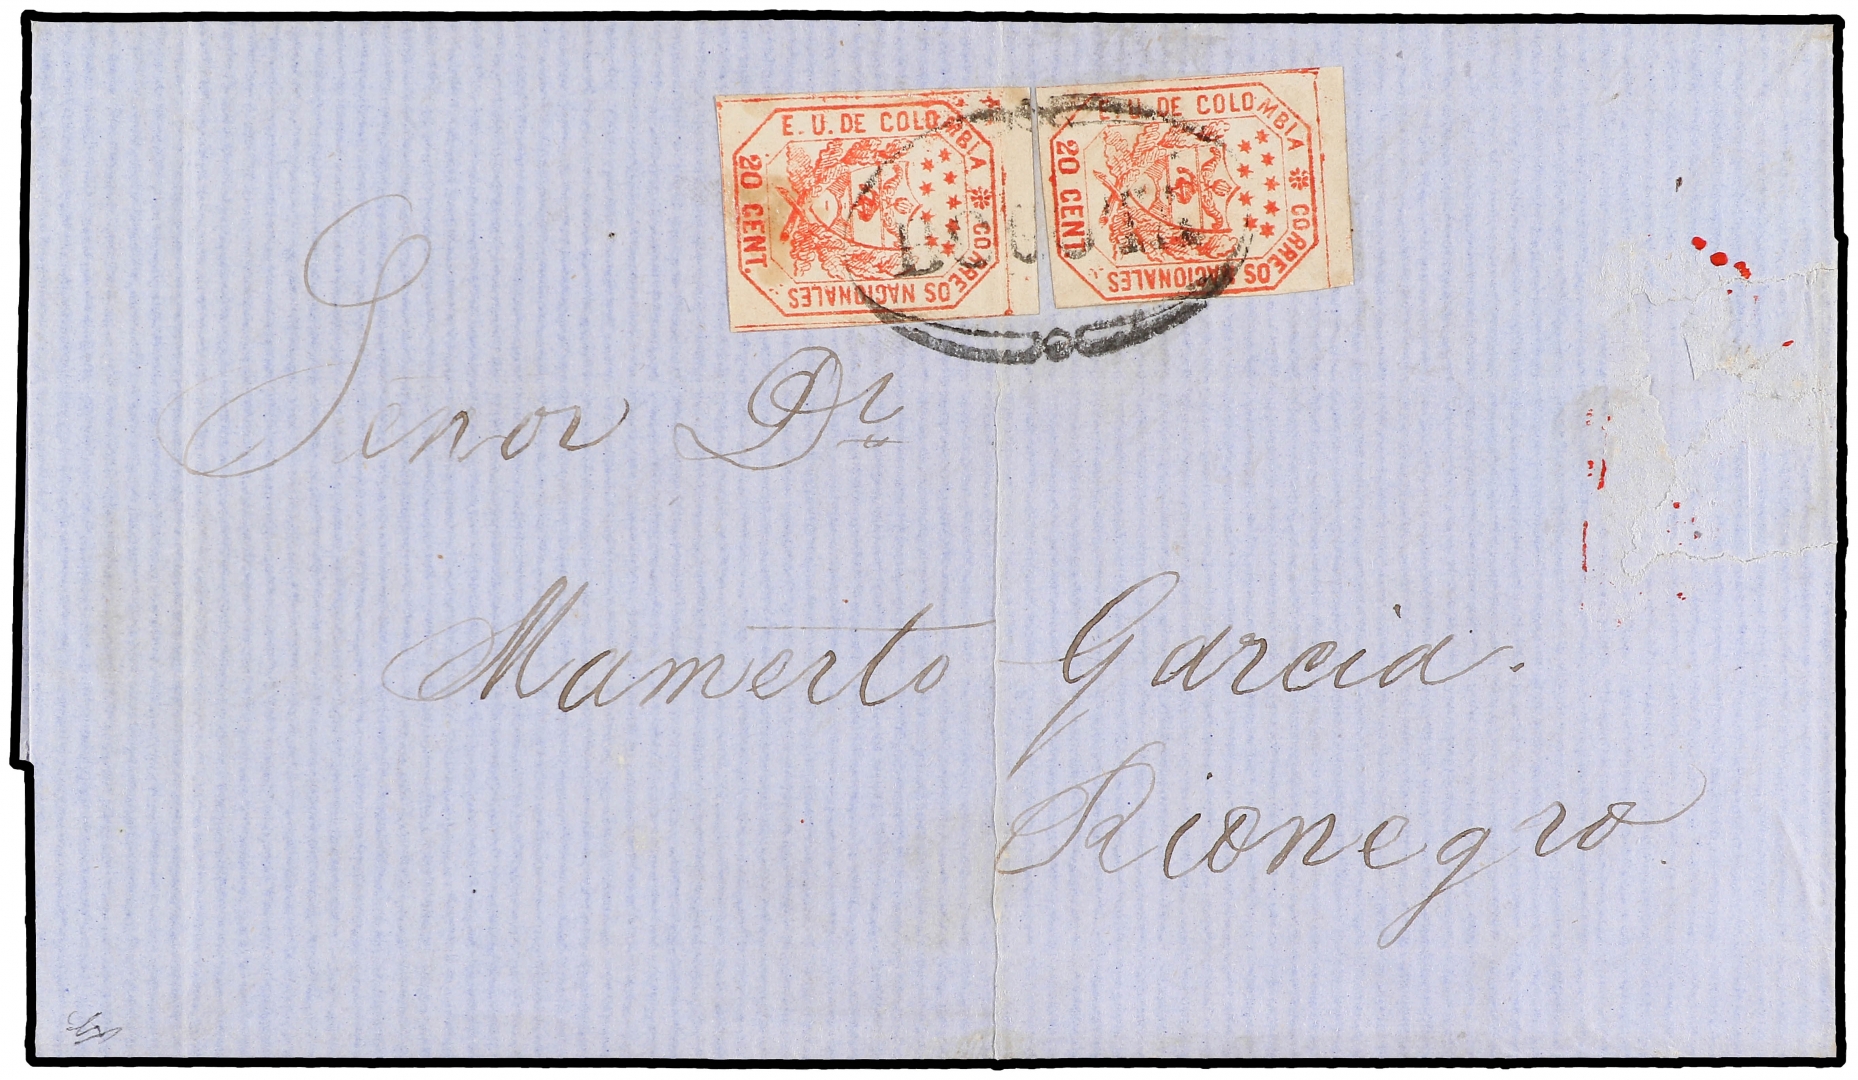 E. U. DE COLOMBIA * CORREOS NACIONALES
20 CENT.
E. U. DE COLOMBIA * CORREOS NACIONALES
20 CENT.
BOGOTA
Señor Dr
Mamerto Garcia.
Rionegro